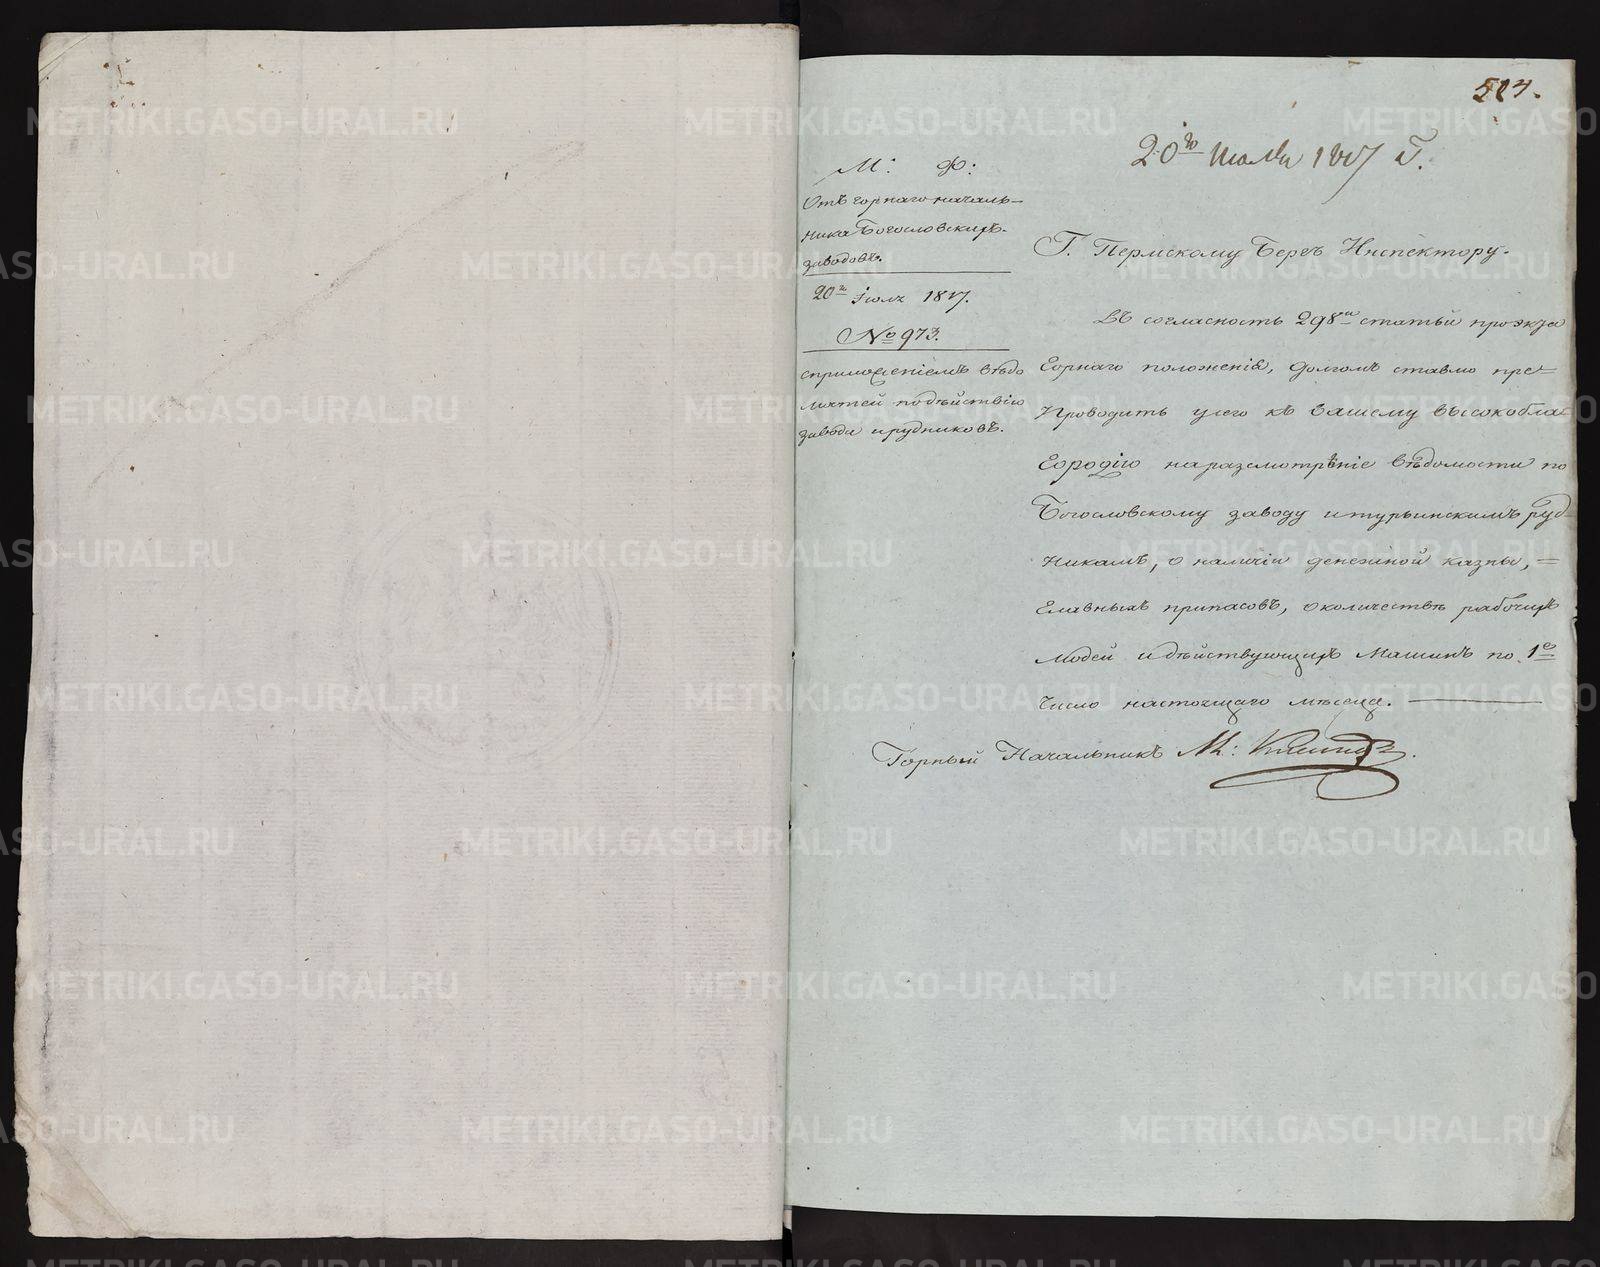 20го Июля 1817 Г.
М: Ф:
Отъ горнаго началь-
ника Богословскихъ
заводовъ.
20го Іюля 1817.
№ 973.
съ приложеніемъ вѣдо
мостей по дѣйствію
завода и рудниковъ.
Г. Пермскому Бергъ Инспектору.
Въ согласность 298й статьи проэкта
Горнаго положенія, долгомъ ставлю пре=
проводить у сего къ вашему высокобла=
городію на разсмотрѣніе вѣдомости по
Богословскому заводу и турьинскимъ руд=
никамъ, о наличіи денежной казны, =
главныхъ припасовъ, о количествѣ рабочихъ
людей и дѣйствующихъ машинъ по 1е
число настоящаго мѣсяца.
Горный Начальникъ М:
METRIKI.GASO-URAL.RU